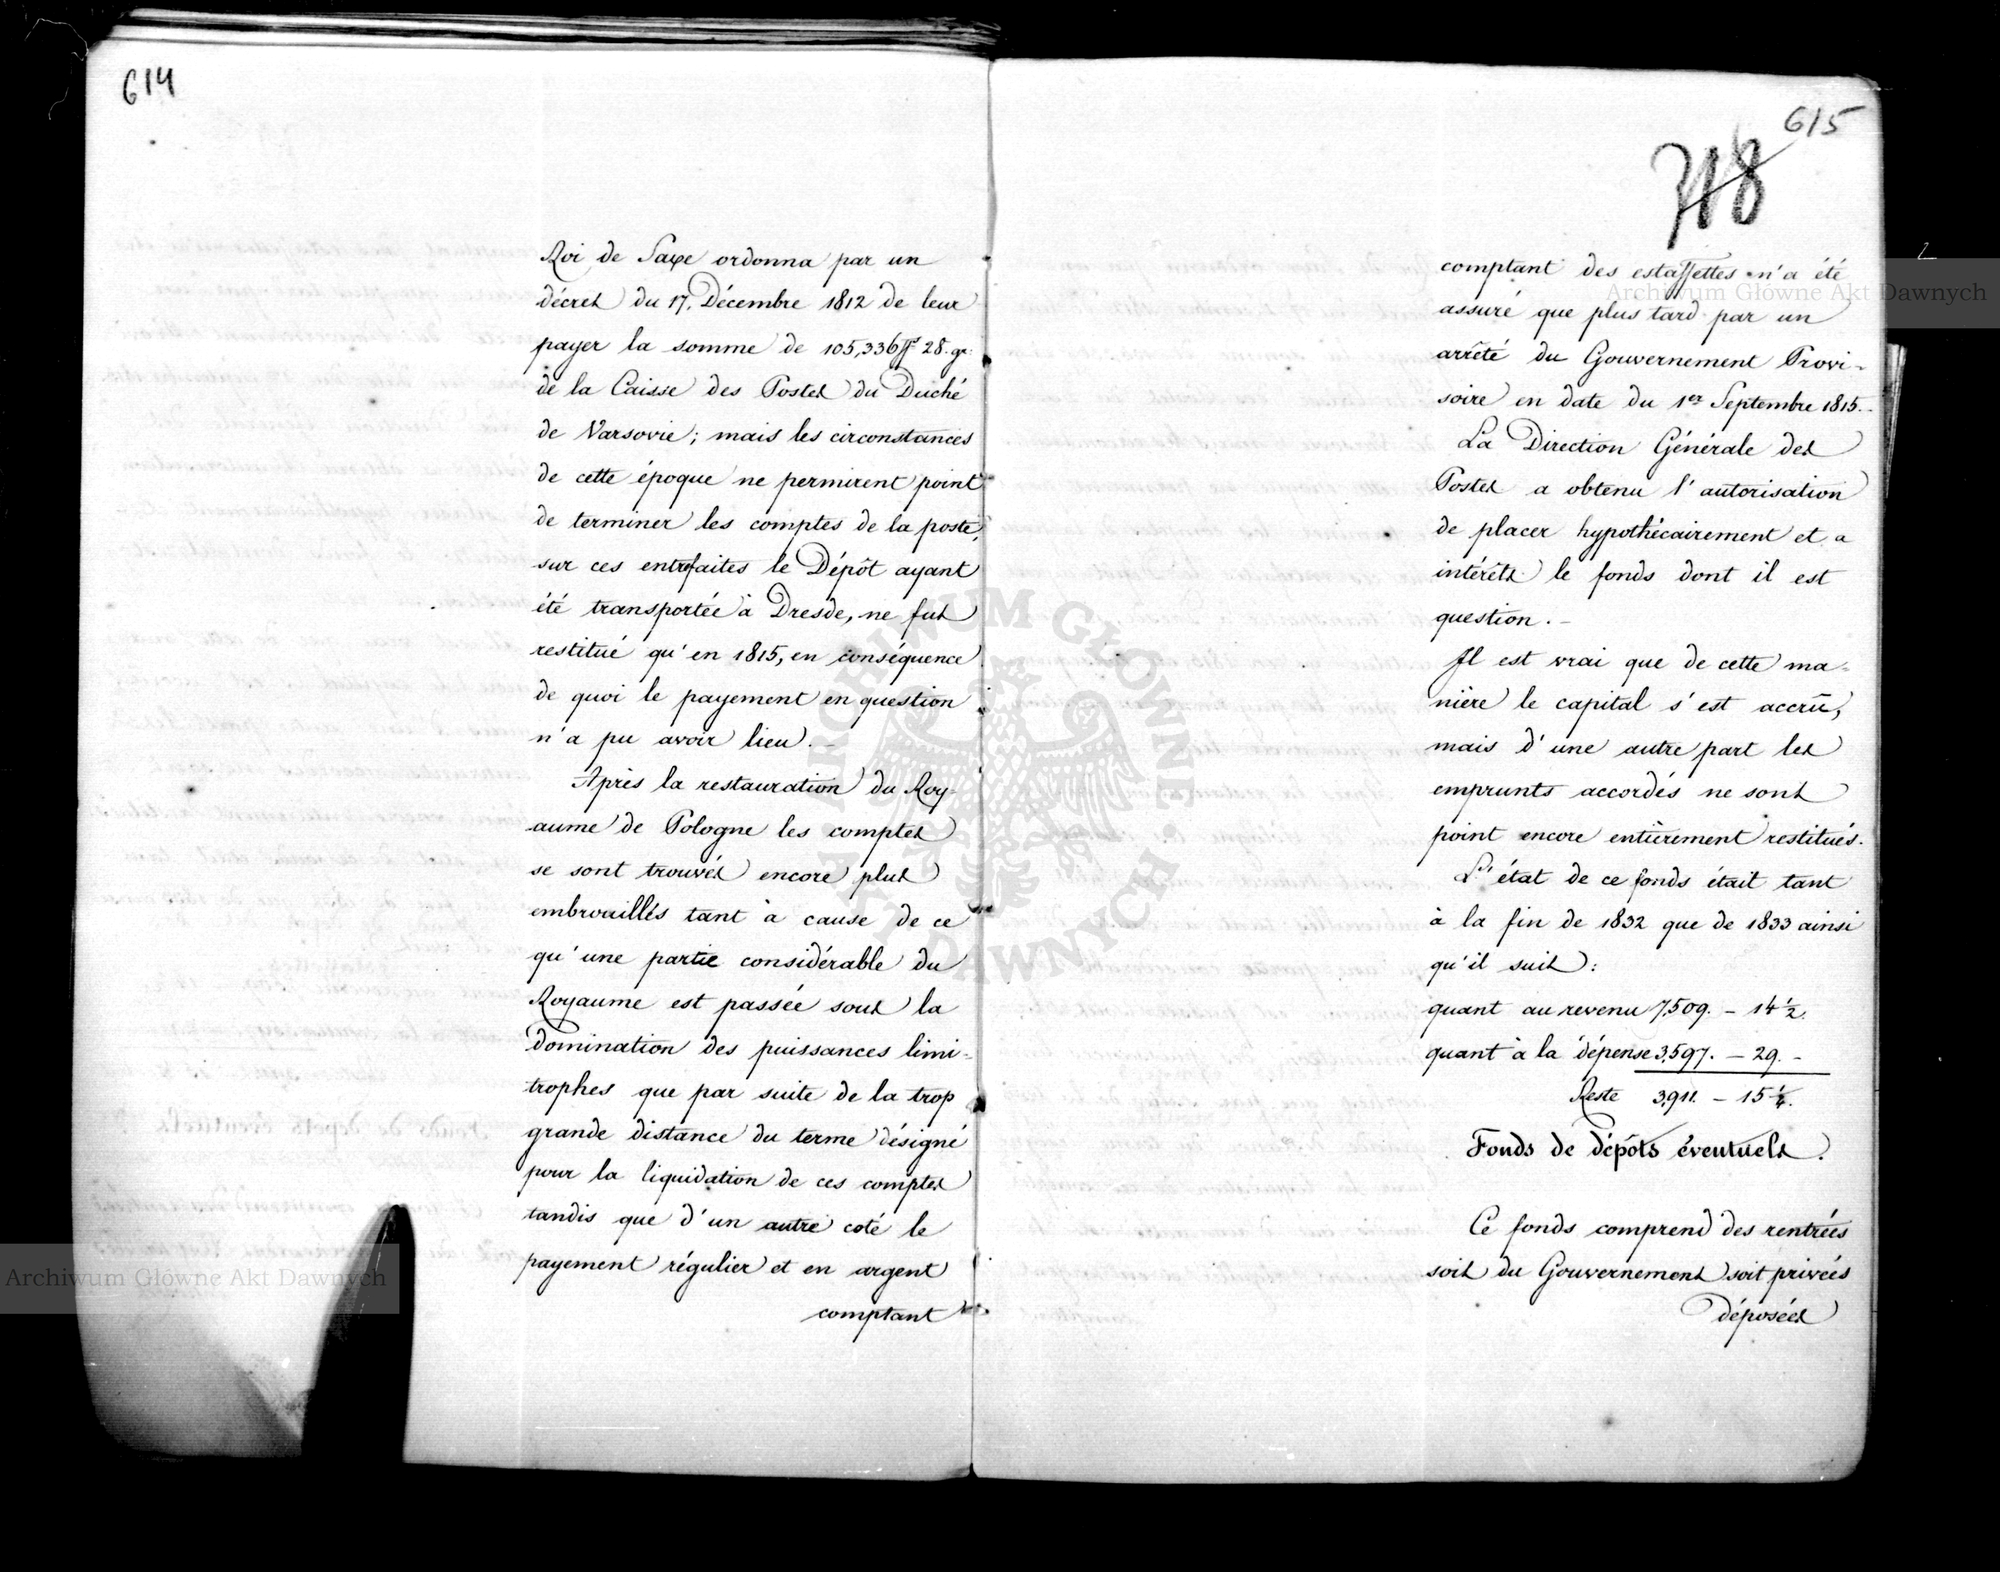 614
Roi de Saxe ordonna par un
décret du 17. Décembre 1812 de leur
payer la somme de 105,336 ff 28. gr.
de la Caisse des Postes du Duché
de Varsovie; mais les circonstances
de cette époque ne permirent point
de terminer les comptes de la poste,
sur ces entrefaites le Dépôt ayant
été transportée à Dresde, ne fut
restitué qu'en 1815, en conséquence
de quoi le payement en question
n'a pu avoir lieu. –
Après la restauration du Roy-
aume de Pologne les comptes
se sont trouvés encore plus
embrouillés tant à cause de ce
qu'une partie considérable du
Royaume est passée sous la
domination des puissances limi-
trophes que par suite de la trop
grande distance du terme désigné
pour la liquidation de ces comptes
tandis que d'un autre coté le
payement régulier et en argent
comptant
615
718
comptant des estaffettes n'a été
assuré que plus tard par un
arrêté du Gouvernement Provi-
soire en date du 1er Septembre 1815.
La Direction Générale des
Postes a obtenu l'autorisation
de placer hypothécairement et a
intérêts le fonds dont il est
question. –
Il est vrai que de cette ma-
nière le capital s'est accrû,
mais d'une autre part les
emprunts accordés ne sont
point encore entièrement restitués.
L'état de ce fonds était tant
à la fin de 1832 que de 1833 ainsi
qu'il suit:
quant au revenu 7,509. – 14 1/2.
quant à la dépense 3,597. – 29. –
Reste 3,911. – 15 1/2.
Fonds de dépôts éventuels.
Ce fonds comprend des rentrées
soit du Gouvernement soit privées
déposées
2
Archiwum Główne Akt Dawnych
Archiwum Główne Akt Dawnych
ARCHIWUM GŁÓWNE AKT DAWNYCH